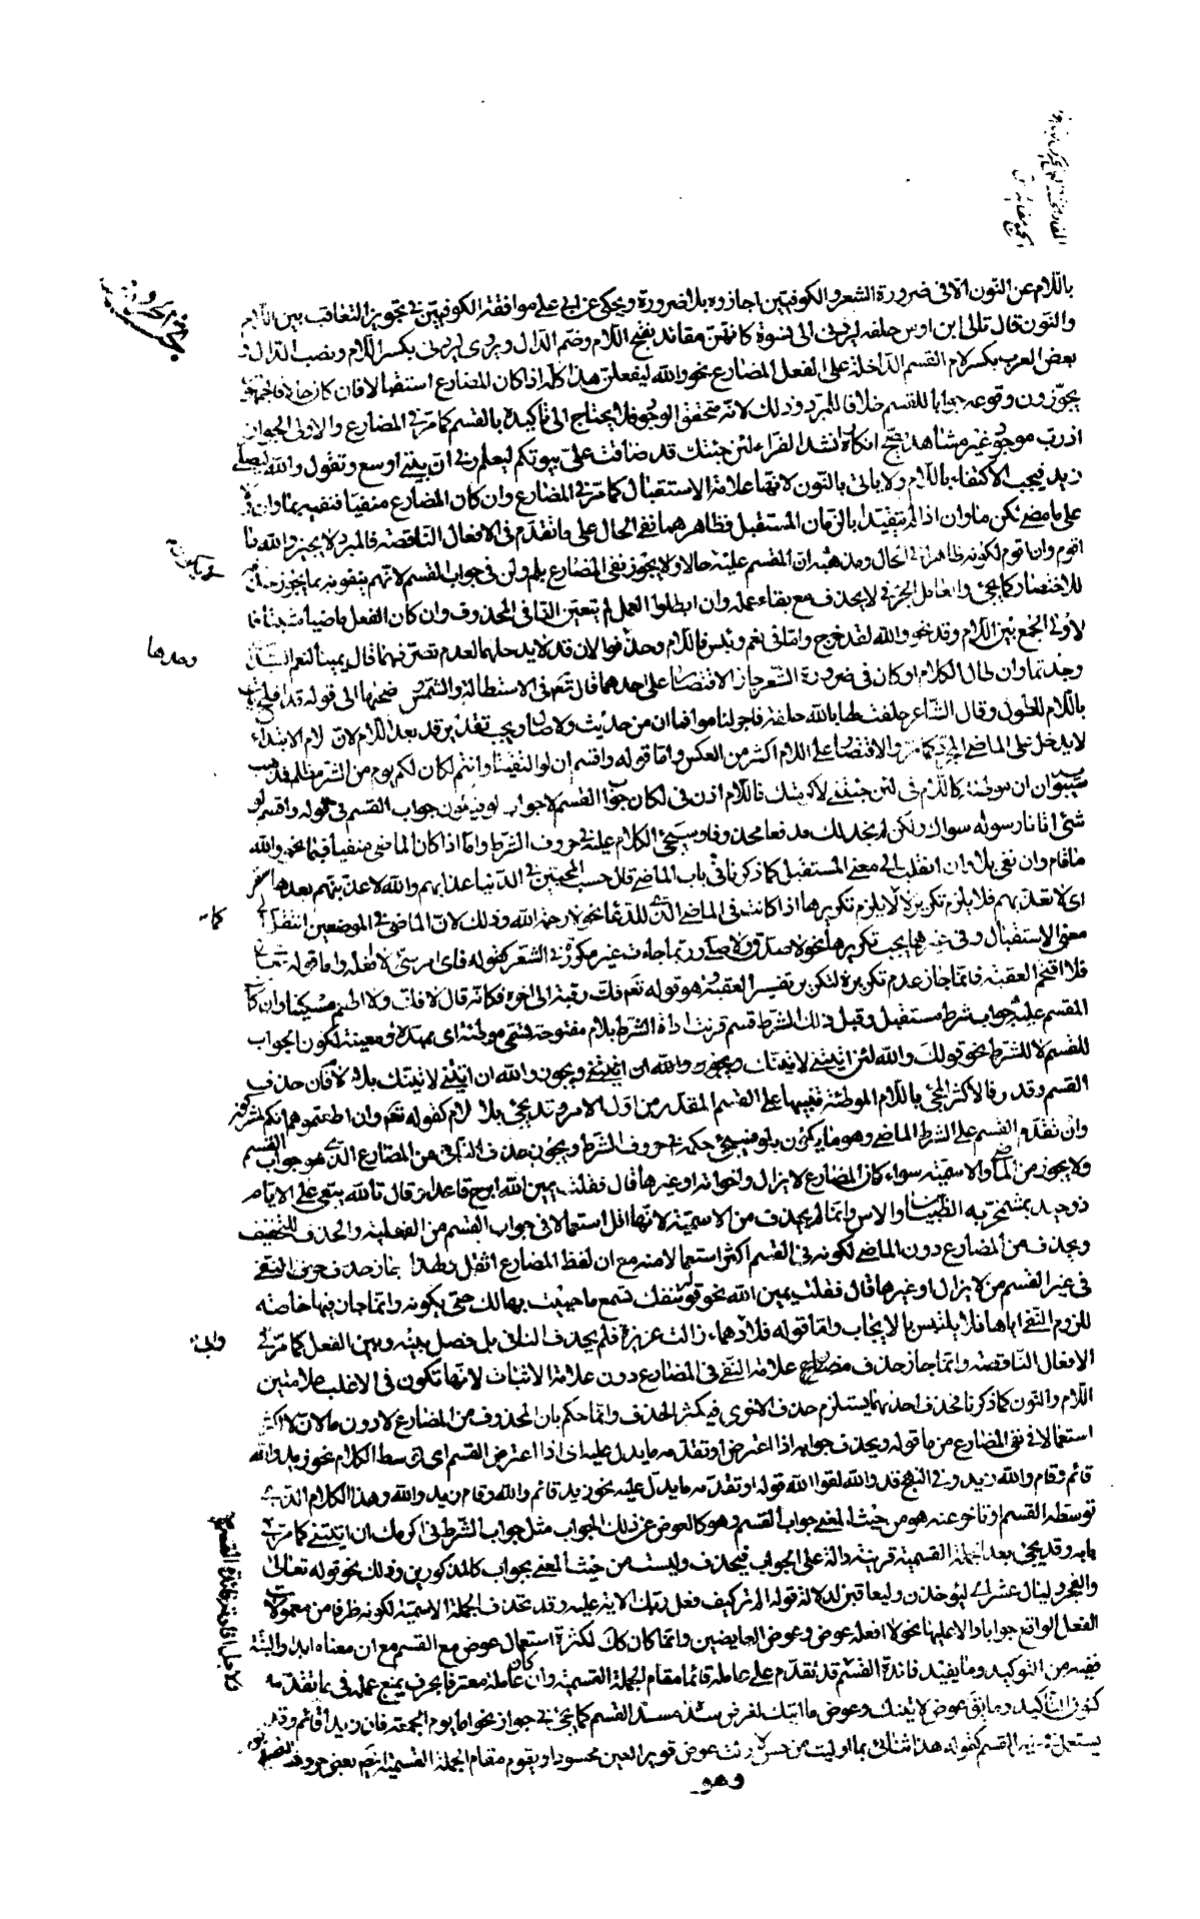 باللام عن النون الا فى ضرورة الشعر والكوفيين اجازوه بلا ضرورة ويحكى عن ابى على موافقة الكوفيين فى تجويز التعاقب بين اللام
والنون قال تالى ابن اوس حلفة ليردنى الى نسوة كانهن مفائد بفتح اللام وضم الدال ويروى ليردنى بكسر اللام ونصب الدال
بعض العرب بكسر لام القسم الداخلة على الفعل المضارع نحو والله ليفعلن هذا كله اذا كان المضارع استقبالا فان كان حالا فالجمهور
يجوزون وقوعه جوابا للقسم خلافا للمبرد وذلك لانه متحقق الوجود فلا يحتاج الى تاكيده بالقسم كما مر فى المضارع والاولى الجواز
اذ رب موجود غير مشاهد يصح انكاره انشد الفراء لئن جئتك قد ضاقت على بيوتكم ليعلم ربى ان بيتى اوسع وتقول والله ليصلى
زيد فيجب الاكتفاء باللام ولا ياتى بالنون لانها علامة الاستقبال كما مر فى المضارع وان كان المضارع منفيا فنفيه بما وان
على ما مضى لكن ما وان اذا لم يتقيدا بالزمان المستقبل فظاهرهما نفى الحال على ما تقدم فى الافعال الناقصة فالمبرد لا يجيز والله ما
اقوم وان اقوم لكونه ظاهرا فى الحال ومذهبه ان المقسم عليه حالا ولا يجوز نفى المضارع بلم ولن فى جواب القسم لانهم ينفونه بما يجوز حذفه
للاختصار كما يجئ والعامل الحرفى لا يحذف مع بقاء عمله وان ابطلوا العمل لم يتعين النافى المحذوف وان كان الفعل ماضيا مثبتا
لاولى الجمع بين اللام وقد نحو والله لقد خرج واما فى نعم وبئس فاللام وحدها اذ لان قد لا يدخلهما لعدم تصرفهما قال يمينا لنعم السيدان
وجدتما وان طال الكلام او كان فى ضرورة الشعر جاز الاقتصار على احدهما قال تعم فى الاستطالة والشمس وضحيها الى قوله قد افلح
باللام للطول وقال الشاعر حلفت لها بالله حلفة فاجر لناموا فما ان من حديث ولا صال ويجب تقدير قد بعد اللام لان لام الابتداء
لا يدخل على الماضى المجرد كما مر والاقتصار على اللام اكثر من العكس واما قوله واقسم ان لو التقينا وانتم لكان لكم يوم من الشر مظلم فمذهب
سيبويه ان ان موطئة كاللام فى لئن جئتنى لاكرمتك فاللام اذن فى لكان جواب القسم لا جواب لو فيكون جواب القسم فى قوله واقسم لو
شئ اتانا رسوله سواك ولكن لم نجد لك مدفعا محذوفا وسيجئ الكلام عليه فى حروف الشرط واما اذا كان الماضى منفيا فبما نحو والله
ما قام وان نفى بلا وان انقلب الى معنى المستقبل كما ذكرنا فى باب الماضى قال حسب المحبين فى الدنيا عذابهم والله لا عذبتهم بعدها سقر
اى لا تعذبهم فلا يلزم تكريرها كما لا يلزم تكريرها اذا كانت فى الماضى الذى للدعاء نحو لا رحمه الله وذلك لان الماضى فى الموضعين انتقل الى
معنى الاستقبال وفى غيرهما يجب تكريرها نحو لا صدق ولا صلى وربما جاءت غير مكررة فى الشعر كقوله فاى امر سيئ لا فعله واما قوله تعالى
فلا اقتحم العقبة فانما جاز عدم تكريره لتكرير تفسير العقبة وهو قوله تعم فك رقبة الى اخره فكانه قال لا فك ولا اطعم مسكينا وان كان
المقسم عليه جواب شرط مستقبل وقبل ذلك الشرط قسم قرنت اداة الشرط بلام مفتوحة تسمى موطئة اى ممهدة ومعينة لكون الجواب
للقسم لا للشرط نحو قولك والله لئن اتيتنى لاتيتك ويجوز والله ان اتيتنى ويجوز والله ان اتيتنى لاتيتك بلا لام فان حذف
القسم وقدر فالاكثر المجئ باللام الموطئة تنبيها على القسم المقدر من اول الامر وقد يجئ بلا لام كقوله تعم وان اطعتموهم انكم لمشركون
وان تقدم القسم على الشرط الماضى وهو ما يكون بلو فسيجئ حكمه فى حروف الشرط ويجوز حذف النافى من المضارع الذى هو جواب القسم
ولا يجوز من الماضى والاسمية سواء كان المضارع لا يزال واخواته او غيرها قال فقلت يمين الله ابرح قاعدا وقال تالله يبقى على الايام
ذو حيد بمشمخر به الظيان والاس وانما لم يحذف من الاسمية لانها اقل استعمالا فى جواب القسم من الفعلية والحذف للتخفيف
ويحذف من المضارع دون الماضى لكونه فى القسم اكثر استعمالا منه مع ان لفظ المضارع اثقل ولهذا جاز حذف حرف النفى
فى غير القسم من لا يزال او غيرها قال فقلت يمين الله نحو قوله تنفك تسمع ما حييت بهالك حتى تكونه وانما جاز فيها خاصة
للزوم النفى اياها فلا يلتبس بالايجاب واما قوله فلا وابى دهماء زالت عزيزة فلم يحذف النافى بل فصل بينه وبين الفعل كما مر فى
الافعال الناقصة وانما جاز حذف علامة النفى فى المضارع دون علامة الاثبات لانها تكون فى الاغلب علامتين
اللام والنون كما ذكرنا فحذف احدهما يستلزم حذف الاخرى فيكثر الحذف وانما حكم بان المحذوف من المضارع لا دون ما لان لا اكثر
استعمالا فى نفى المضارع من ما قوله ويحذف جوابه اذا اعترض او تقدمه ما يدل عليه اى اذا اعترض القسم اى توسط الكلام نحو زيد والله
قائم وقام والله زيد وفى النهج قد والله لقوا الله قوله او تقدمه ما يدل عليه نحو زيد قائم والله وقام زيد والله وهذا الكلام الذى
توسطه القسم او تاخر عنه هو من حيث المعنى جواب القسم وهو كالعوض عن ذلك الجواب مثل جواب الشرط فى اكرمك ان اتيتنى كما مر فى
بابه وقد يجئ بعد الجملة القسمية قرينة دالة على الجواب فيحذف وليست من حيث المعنى بجواب كالمذكورين وذلك نحو قوله تعالى
والفجر وليال عشر اى ليؤخذن وليعاقبن لدلالة قوله الم تر كيف فعل ربك الاية عليه وقد تحذف الجملة الاسمية لكونه ظرفا من معمولات
الفعل الواقع جوابا دالا عليها نحو لا افعله عوض وعوض العايضين وانما كان كذلك لكثرة استعمال عوض مع القسم مع ان معناه ابدا والبتة
ففيه من التوكيد وما يفيد فائدة القسم قد تقدم على عامله قائما مقام الجملة القسمية وان كان عامله مقترنا بحرف يمنع عمله فى ما تقدمه
كنون التاكيد وما يقال عوض لاتينك وعوض ما اتيك لغرض سده مسد القسم كما يجئ فى جواز نحو اما يوم الجمعة فان زيدا قائم وقد
يستعمل فى غير القسم كقوله هذا ثنائى بما اوليت من حسن لا زلت عوض قرير العين محسودا ويقوم مقام الجملة القسمية ايضا بعض حروف التصديق
وهو
وحدها